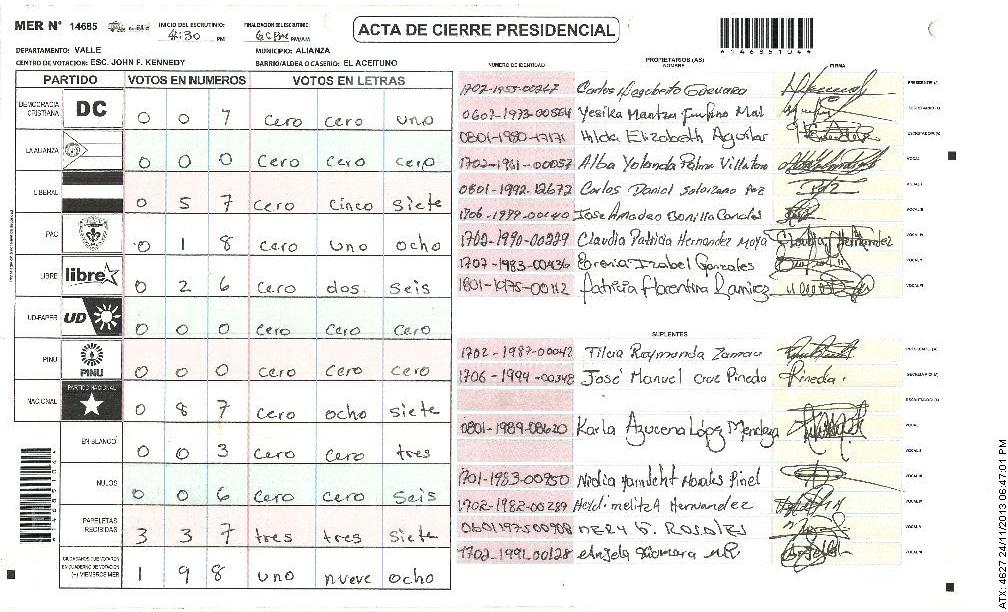 MER N° 14685 INICIO DEL ESCRUTINIO: 4:30 PM FINALIZACION ESCRUTINIO: PM/AM
ACTA DE CIERRE PRESIDENCIAL
DEPARTAMENTO: VALLE MUNICIPIO: ALIANZA
CENTRO DE VOTACION: ESC. JOHN F. KENNEDY BARRIO/ALDEA O CASERIO: EL ACEITUNO
PARTIDO VOTOS EN NUMEROS VOTOS EN LETRAS
DEMOCRACIA CRISTIANA DC 0 0 7 cero cero uno
LA ALIANZA 0 0 0 cero cero cero
LIBERAL 0 5 7 cero cinco siete
PAC 0 1 8 cero uno ocho
LIBRE libre 0 2 6 cero dos seis
UD-FAPER UD 0 0 0 cero cero cero
PINU PINU 0 0 0 cero cero cero
NACIONAL PARTIDO NACIONAL 0 8 7 cero ocho siete
EN BLANCO 0 0 3 cero cero tres
NULOS 0 0 6 cero cero seis
PAPELETAS RECIBIDAS 3 3 7 tres tres siete
CIUDADANOS QUE VOTARON EN CUADERNO DE VOTACION (+) MIEMBROS MER 1 9 8 uno nueve ocho
NUMERO DE IDENTIDAD PROPIETARIOS (AS) NOMBRE FIRMA
1702-1955-00247 Carlos Guevara PRESIDENTE (A)
0607-1973-00564 Yesika SECRETARIO (A)
0801-1980-17171 Hilda Elizabeth Aguilar ESCRUTADOR (A)
1702-1961-00057 Alba Yolanda Palma Villatoro VOCAL
0801-1992-12672 Carlos Daniel Solorzano Paz VOCAL I
1706-1979-00140 Jose Amadeo Bonilla Canales VOCAL II
1702-1990-00229 Claudia Patricia Hernandez Moya Claudia Hernandez
1707-1983-00436 Izabel Gonzales
1801-1975-00112 Patricia Florentina Ramirez
SUPLENTES
1702-1987-00042 Tilcia Raymunda PRESIDENTE (A)
1706-1994-00348 José Manuel Cruz Pineda Pineda SECRETARIO (A)
ESCRUTADOR (A)
0801-1989-08620 Karla Azucena López Mendoza VOCAL
1701-1983-00950 Nidia Pinel
1702-1982-00289 Heidi melitza Hernandez
0601197500908 NERY G. ROSALES
1702-1991-00128 Anjela Xiomara
ATX: 4627 24/11/2013 06:47:01 PM